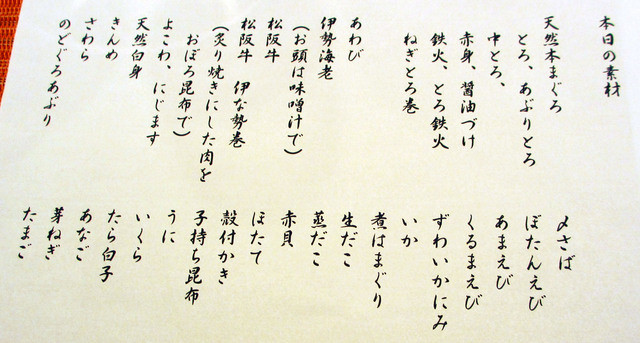 本日の素材
天然本まぐろ
とろ、あぶりとろ
中とろ、
赤身、醤油づけ
鉄火、とろ鉄火
ねぎとろ巻
あわび
伊勢海老
(お頭は味噌汁で)
松阪牛
松阪牛　伊な勢巻
(炙り焼きにした肉を
おぼろ昆布で)
よこわ、にじます
天然白身
きんめ
さわら
のどぐろあぶり
〆さば
ぼたんえび
あまえび
くるまえび
ずわいかにみ
いか
煮はまぐり
生だこ
蒸だこ
赤貝
ほたて
殻付かき
子持ち昆布
うに
いくら
たら白子
あなご
芽ねぎ
たまご